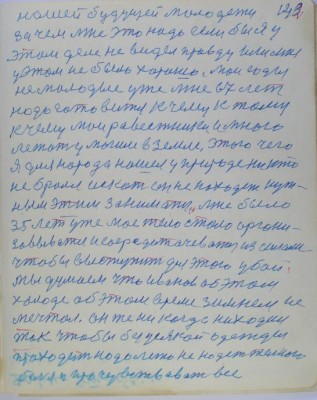 192
нашей будущей молодежи
зачем мне это надо если бы я у
этом деле не видел правду или мне
у этом не было хорошо, мои годы
не молодые уже мне 67 лет
надо готовится к чему к тому
к чему мои равестники и много
лежат у могиле в земле, этого чего
я для народа нашел у природе никто
не брался искат он не находит нуж-
ным этим заниматся, мне было
35 лет уже мое тело стало органи-
зовывати и сосредотачеватся из силами
чтобы выступит для этого у бой
мы думаем что Иванов об этом
холоде об этом время зимнем не
мечтал. он же никогда не ходил
так чтобы без всякой одежды
проходит надолго не надет теплого
и прочувствоват все